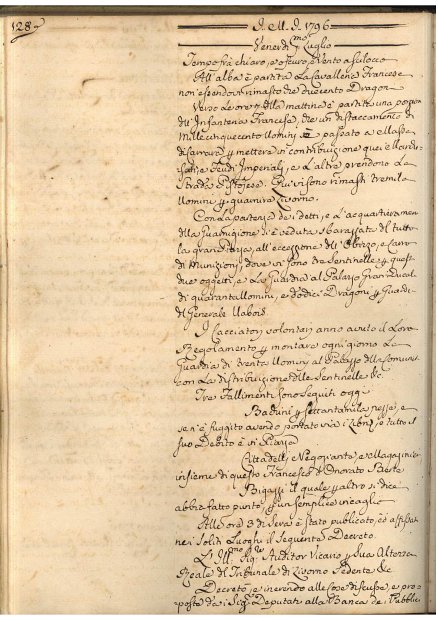 128
A. M. D. 1796
Venerdì p.mo Luglio
Tempo frà chiaro, e oscuro, e Vento a scilocco
All'alba è partita La Cavalleria Francese
non essendovi rimasto che duecento Dragon
Verso Le ore 7 della mattina è partita una porzi
dell'Infanteria Francese, che un distaccamento di
Mille cinquecento Uomini è passato a Massa
di Carrara p mettere in contribuzione quei
Feudi Imperiali, e L'altre prendono La
Strada Pistojese. Qui vi sono rimasti tremila
Uomini p guarnire Livorno.
Con La partenza de i detti, e L'acquartieramen
della Guarnigione si è veduta sbarazzata del tutto
la gran Piazza, all'eccezione dell' e Carro
di Munizioni, dove vi sono tre Sentinelle p quest
due oggetti, e La Guardia al Palazzo Gran Ducale
di quaranta Uomini, e dodici Dragoni p Guardi
del Generale
I Cacciatori volontari anno avuto il Loro
Regolamento p montare ogni giorno La
Guardia di trenta Uomini al Palazzo della Comunit
con La distribuzione delle Sentinelle &c.
Tre Fallimenti sono seguiti oggi
Baduni p settantamila pezze, e
se n'è fuggito avendo portato via i Libri, e tutto il
suo Debito è in Piazza
Cittadelli Negoziante, e Magazinie
insieme di questo Francesco d'Onorato Berte
Bigazzi il quale p altro si dice
abbia fatto punto p un semplice incaglio
Alle ore 3 di Sera è stato publicato, ed affissa
ne i soliti Luoghi il seguente Decreto.
L'Ill.mo Sig.re Auditor Vicario p Sua Altezza
Reale di Tribunale di Livorno Sedente &c
Decretò, e inerendo alle cose discusse, e pro
poste da i Sig.ri Deputati alla Banca de i Pubblici